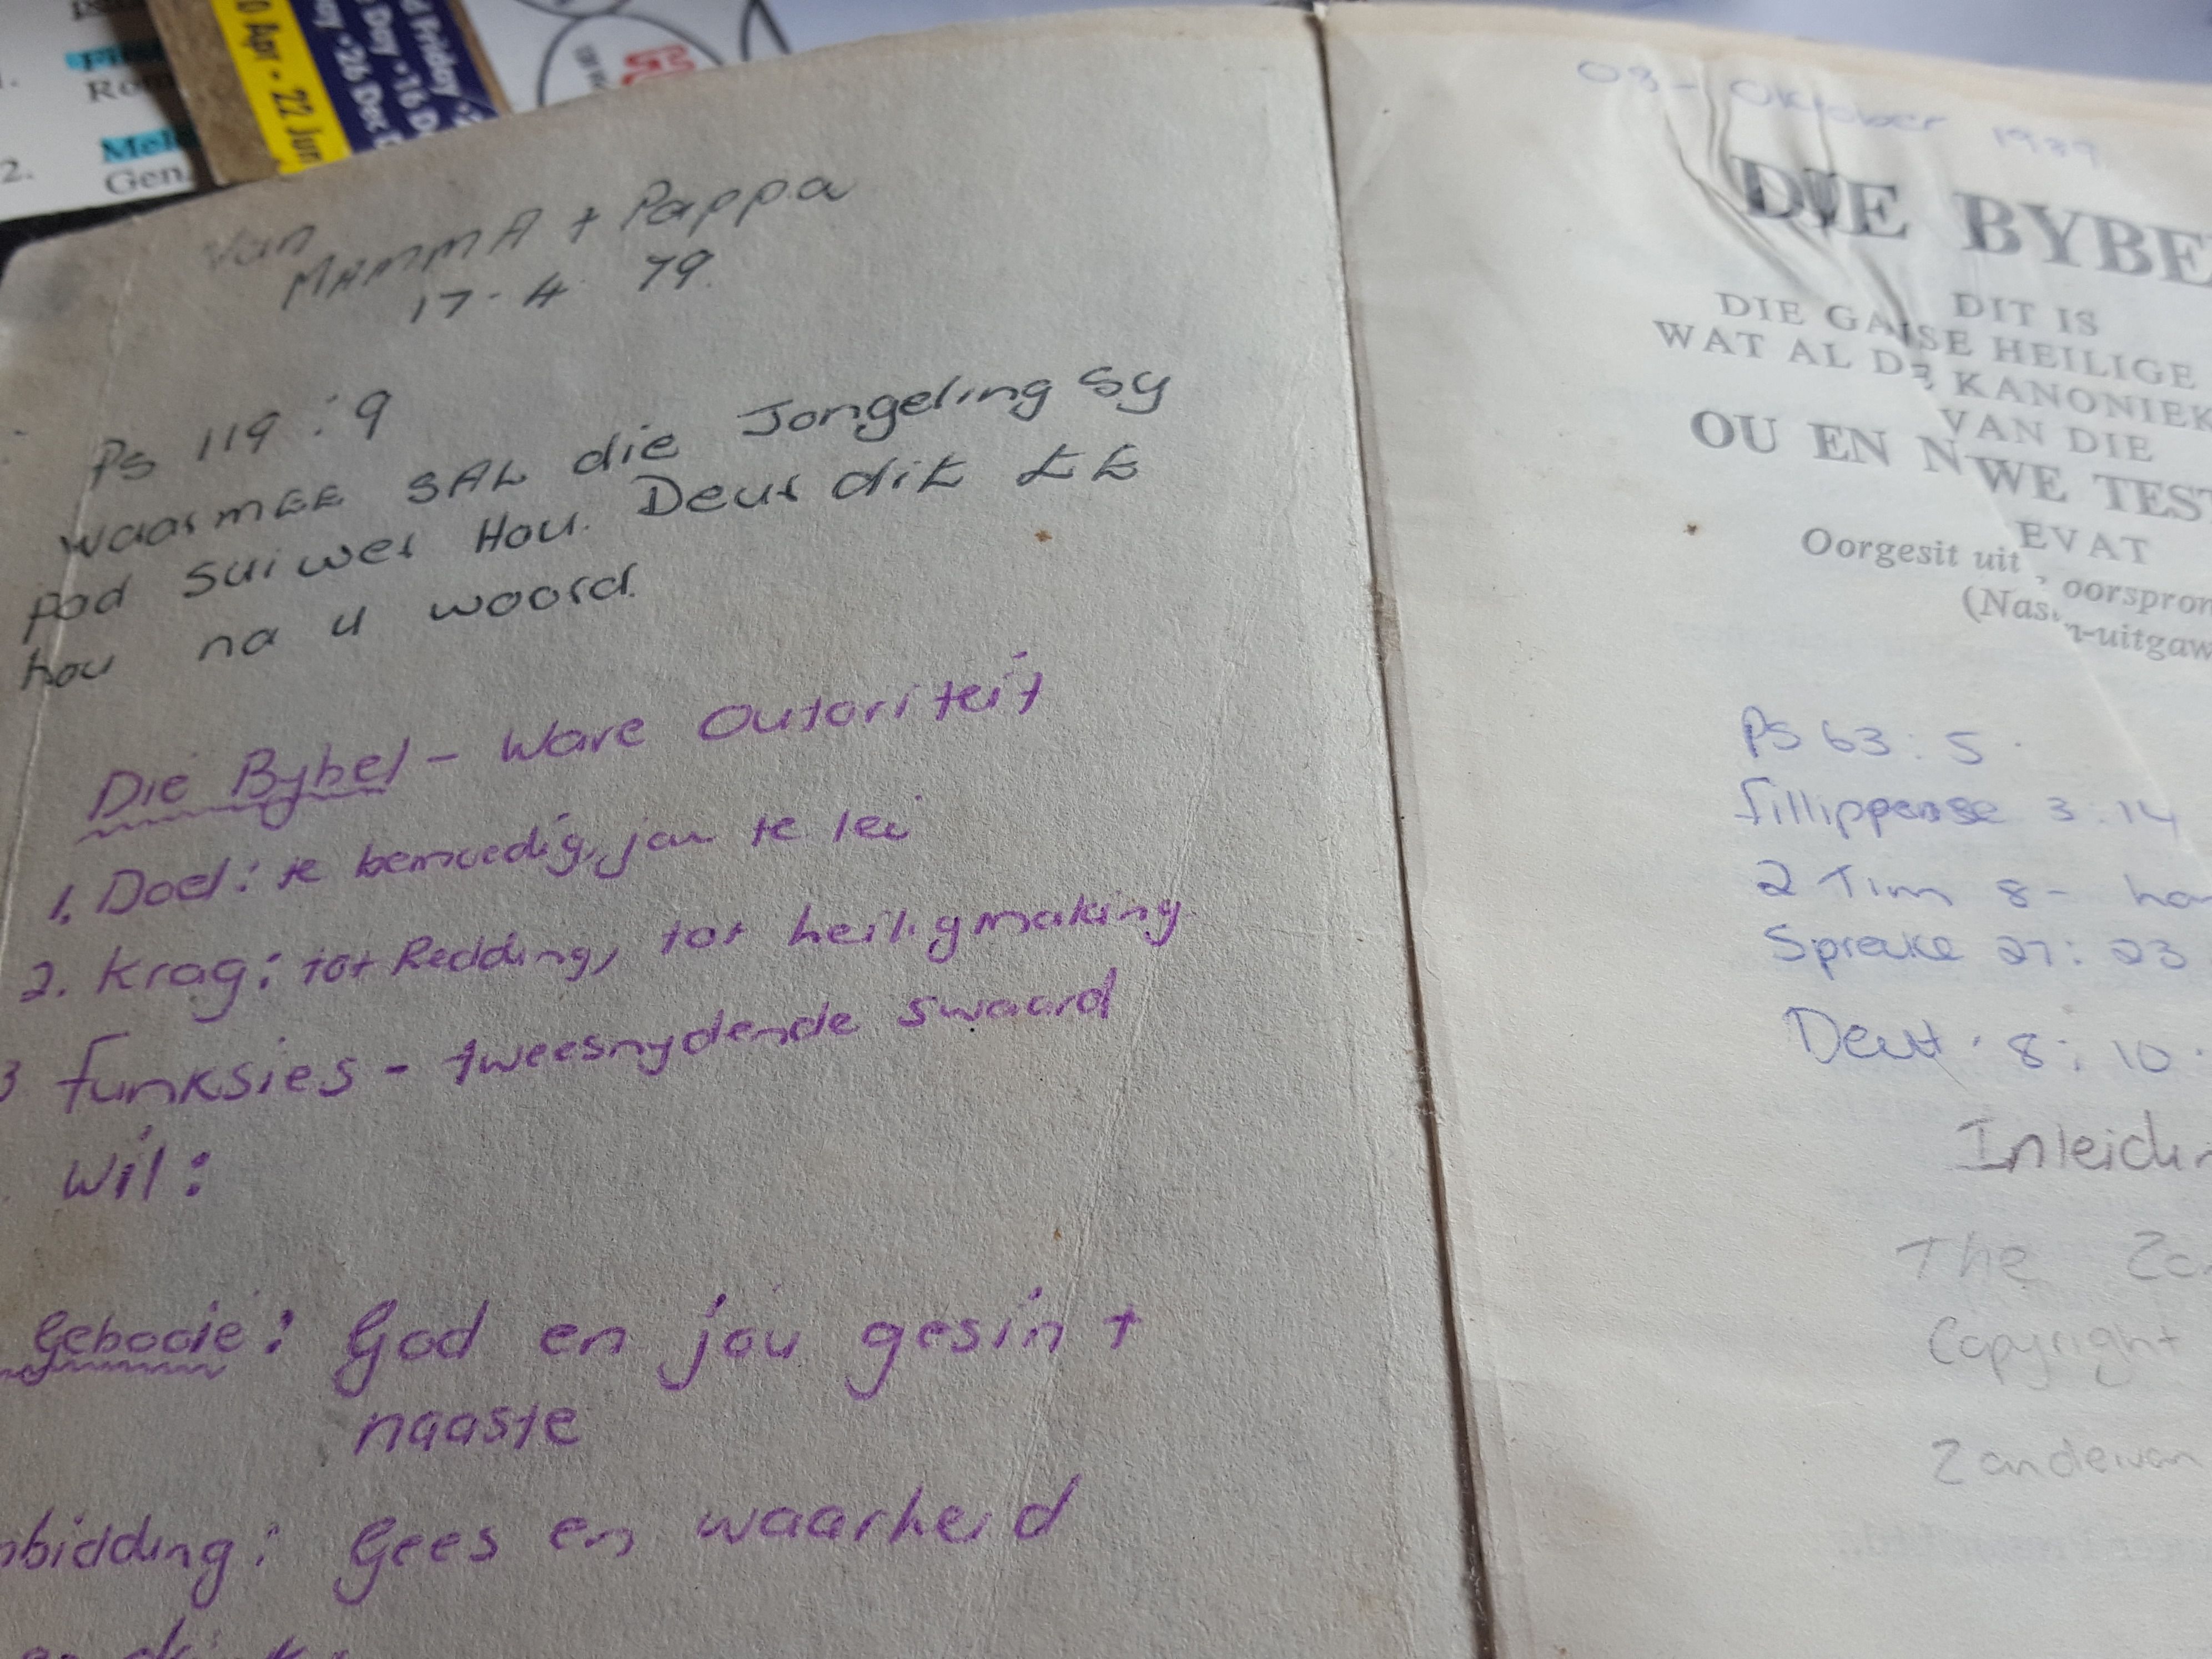 Fri
Rom
2. Mel
Gen.
0 Apr • 22 Jun
d Friday •
Day • 16 D
ay • 26 Dec
Van
MAMMA + Pappa
17-4 79.
Ps 119 : 9
waarmEE SAL die Jongeling Sy
pad suiwer Hou. Deur dit tE
hou na u woord.
Die Bybel - Ware Outoriteit
1. Doel: te bemoedig, jou te lei
2. Krag: tot Redding, tot heiligmaking.
3 Funksies - tweesnydende swaard
Wil:
Gebooie: God en jou gesin +
naaste
bidding: Gees en waarheid
03 - Oktober 1989.
DIE BYBE
DIT IS
DIE GA SE HEILIGE
WAT AL D KANONIEK
VAN DIE
OU EN N WE TEST
EVAT
Oorgesit uit oorspron
(Nas n-uitgaw
Ps 63 : 5
fillippense 3:14
2 Tim 8 - ho
Spreuke 27: 23
Deut. 8: 10
Inleidin
The Zo
Copyright
Zandervan